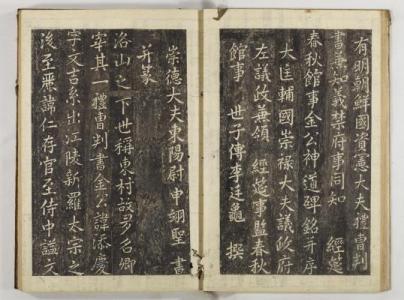 有明朝鮮國資憲大夫禮曹判
書兼知義禁府事同知 經筵
春秋館事金公神道碑銘并序
大匡輔國崇祿大夫議政府
左議政兼領 經筵事監春秋
館事 世子傅李廷龜 撰
崇德大夫東陽尉申翊聖 書
并篆
洛山之下世稱東村故多名卿
宰其一禮曹判書金公諱添慶
字又吉系出江陵新羅太宗之
後至麗諱仁存官至侍中謚文